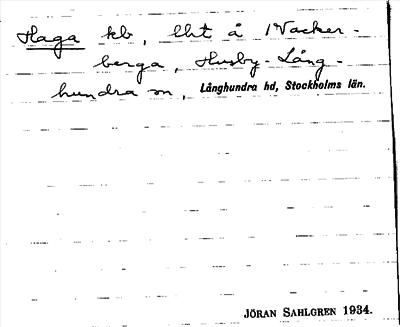 Haga kb, lht å Wacker-
berga, Husby-Lång-
hundra sn, Långhundra hd, Stockholms län.
JÖRAN SAHLGREN 1934.